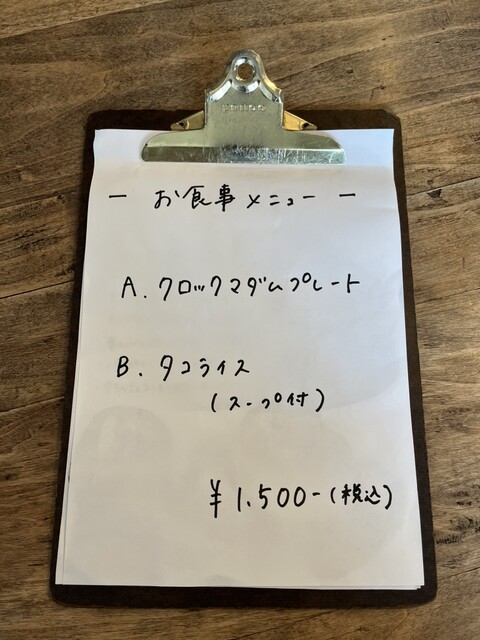 ー お食事メニュー ー
A. クロックマダムプレート
B. タコライス
(スープ付)
¥1.500-(税込)